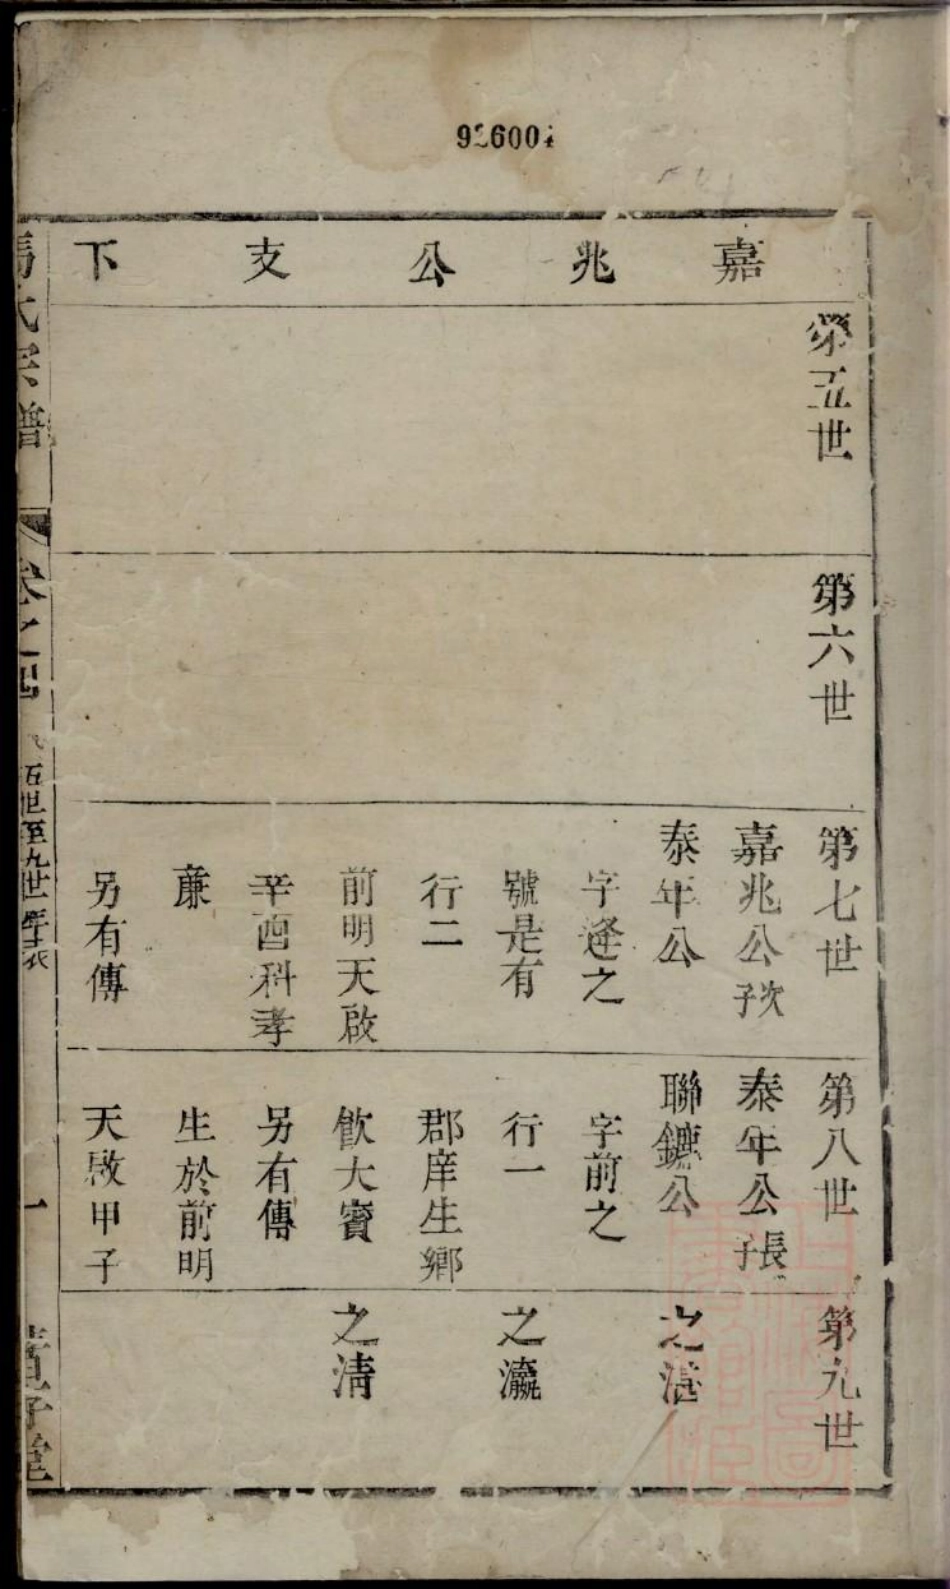 926004
嘉兆公支下
第五世
第六世
第七世
嘉兆公次子
泰年公
字逢之
號是有
行二
前明天啟
辛酉科孝
亷
另有傳
第八世
泰年公長子
聯鑣公
字前之
行一
郡庠生鄉
飲大賓
另有傳
生於前明
天啟甲子
第九世
之湛
之瀛
之清
馮氏宗譜
卷之四
五世至九世年表
一